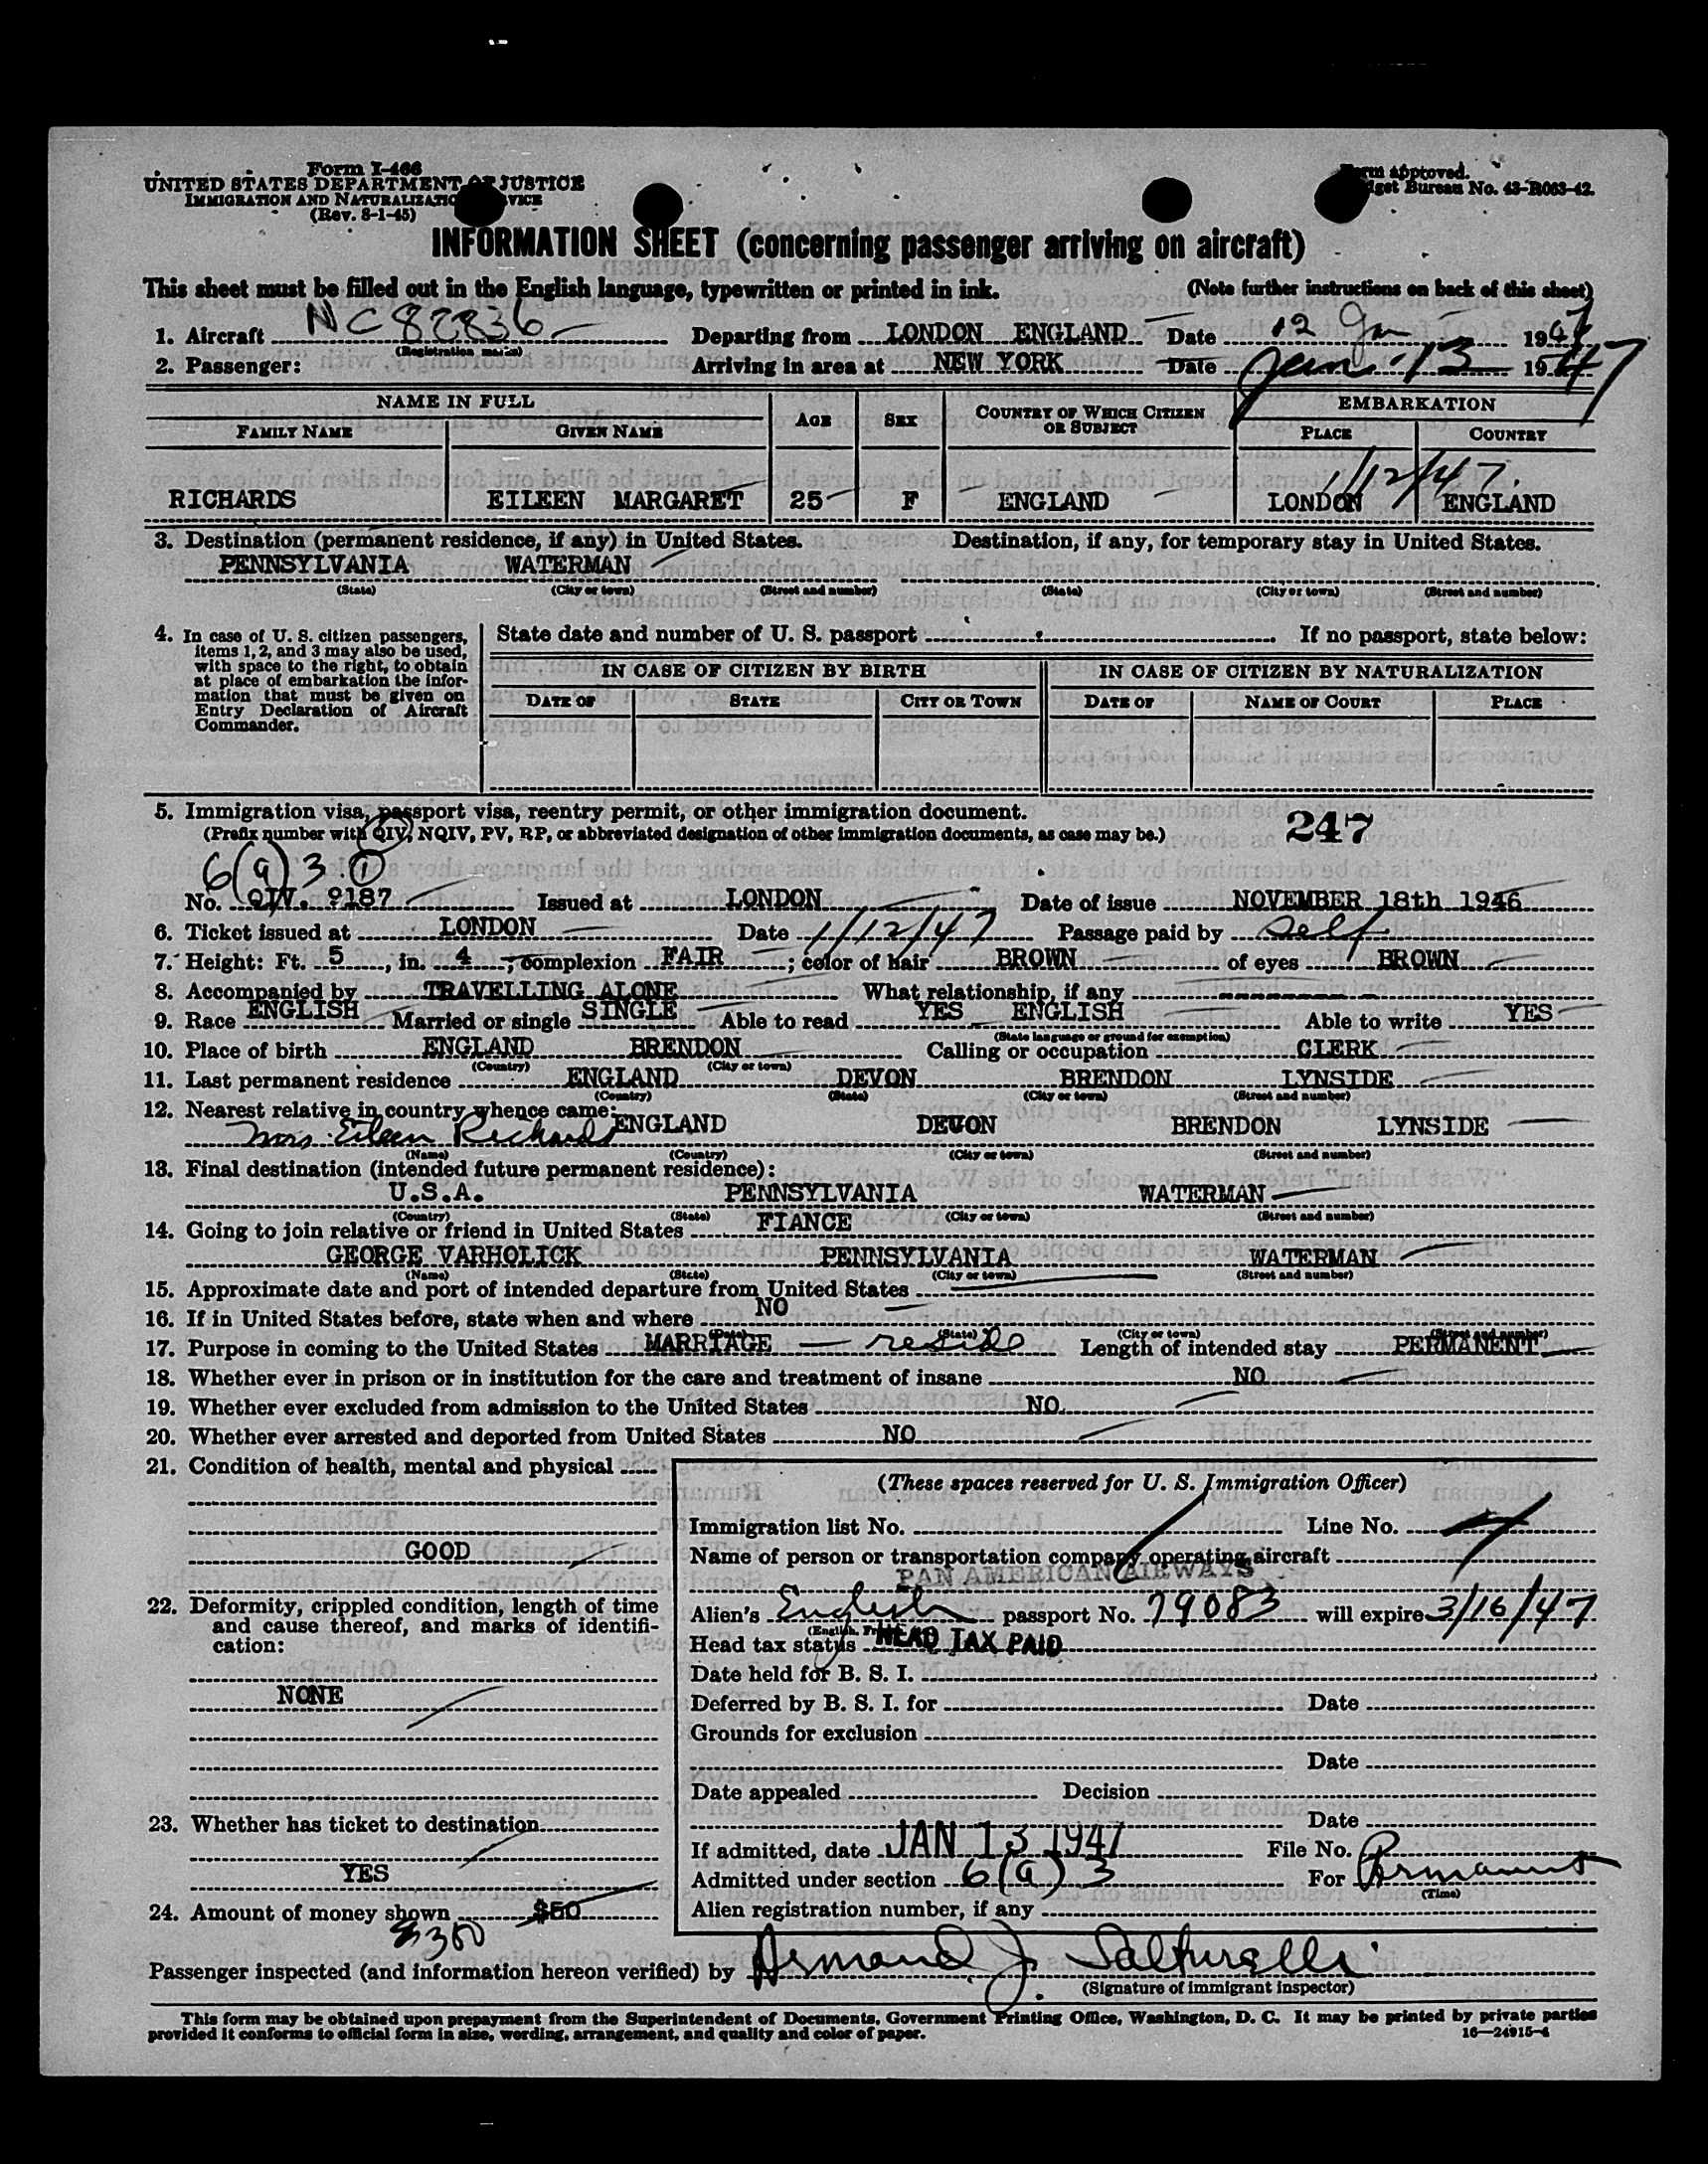 Form I-466
UNITED STATES DEPARTMENT OF JUSTICE
IMMIGRATION AND NATURALIZATION SERVICE
(Rev. 8-1-45)
Form approved.
Budget Bureau No. 43-R063-42.
INFORMATION SHEET (concerning passenger arriving on aircraft)
This sheet must be filled out in the English language, typewritten or printed in ink. (Note further instructions on back of this sheet)
1. Aircraft NC 82836 Departing from LONDON ENGLAND Date 12 Jan 1947
(Registration marks)
2. Passenger: Arriving in area at NEW YORK Date Jan. 13 1947
NAME IN FULL AGE SEX COUNTRY OF WHICH CITIZEN OR SUBJECT EMBARKATION
FAMILY NAME GIVEN NAME PLACE COUNTRY
1/12/47.
RICHARDS EILEEN MARGARET 25 F ENGLAND LONDON ENGLAND
3. Destination (permanent residence, if any) in United States. Destination, if any, for temporary stay in United States.
PENNSYLVANIA WATERMAN
(State) (City or town) (Street and number) (State) (City or town) (Street and number)
4. In case of U. S. citizen passengers, items 1, 2, and 3 may also be used, with space to the right, to obtain at place of embarkation the information that must be given on Entry Declaration of Aircraft Commander.
State date and number of U. S. passport If no passport, state below:
IN CASE OF CITIZEN BY BIRTH IN CASE OF CITIZEN BY NATURALIZATION
DATE OF STATE CITY OR TOWN DATE OF NAME OF COURT PLACE
5. Immigration visa, passport visa, reentry permit, or other immigration document.
(Prefix number with QIV, NQIV, PV, RP, or abbreviated designation of other immigration documents, as case may be.) 247
6(a)3 (1)
No. QIV. 9187 Issued at LONDON Date of issue NOVEMBER 18th 1946
6. Ticket issued at LONDON Date 1/12/47 Passage paid by Self
7. Height: Ft. 5, in. 4; complexion FAIR; color of hair BROWN of eyes BROWN
8. Accompanied by TRAVELLING ALONE What relationship, if any
9. Race ENGLISH Married or single SINGLE Able to read YES ENGLISH Able to write YES
(State language or ground for exemption)
10. Place of birth ENGLAND BRENDON Calling or occupation CLERK
(Country) (City or town)
11. Last permanent residence ENGLAND DEVON BRENDON LYNSIDE
(Country) (State) (City or town) (Street and number)
12. Nearest relative in country whence came:
Mrs. Eileen Richards ENGLAND DEVON BRENDON LYNSIDE
(Name) (Country) (City or town) (Street and number)
13. Final destination (intended future permanent residence):
U.S.A. PENNSYLVANIA WATERMAN
(Country) (State) (City or town) (Street and number)
14. Going to join relative or friend in United States FIANCE
GEORGE VARHOLICK PENNSYLVANIA WATERMAN
(Name) (State) (City or town) (Street and number)
15. Approximate date and port of intended departure from United States
16. If in United States before, state when and where NO
(Date) (State) (City or town) (Street and number)
17. Purpose in coming to the United States MARRIAGE — reside Length of intended stay PERMANENT
18. Whether ever in prison or in institution for the care and treatment of insane NO
19. Whether ever excluded from admission to the United States NO.
20. Whether ever arrested and deported from United States NO
21. Condition of health, mental and physical
GOOD
22. Deformity, crippled condition, length of time and cause thereof, and marks of identification:
NONE
23. Whether has ticket to destination
YES
24. Amount of money shown $50
$300
(These spaces reserved for U. S. Immigration Officer)
Immigration list No. Line No.
Name of person or transportation company operating aircraft
PAN AMERICAN AIRWAYS
Alien's English passport No. 79083 will expire 3/16/47
Head tax status HEAD TAX PAID
Date held for B. S. I.
Deferred by B. S. I. for Date
Grounds for exclusion
Date
Date appealed Decision
Date
If admitted, date JAN 13 1947 File No.
Admitted under section 6(a)3 For Permanent
(Time)
Alien registration number, if any
Passenger inspected (and information hereon verified) by Armand J. Salturelli
(Signature of immigrant inspector)
This form may be obtained upon prepayment from the Superintendent of Documents, Government Printing Office, Washington, D. C. It may be printed by private parties
provided it conforms to official form in size, wording, arrangement, and quality and color of paper. 16—24915-4